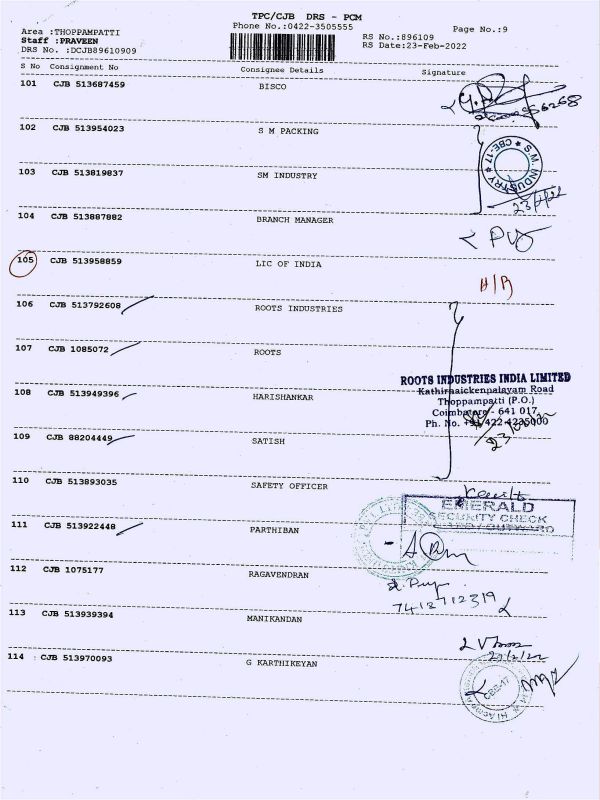 TPC/CJB DRS - PCM
Phone No.:0422-3505555
Page No.:9
Area :THOPPAMPATTI
Staff :PRAVEEN
DRS No. :DCJB89610909
RS No.:896109
RS Date:23-Feb-2022
S No Consignment No Consignee Details Signature
101 CJB 513687459 BISCO
102 CJB 513954023 S M PACKING
S.M. INDUSTRY ★ CBE-17 ★
103 CJB 513819837 SM INDUSTRY
104 CJB 513887882 BRANCH MANAGER
105 CJB 513958859 LIC OF INDIA
H/R
106 CJB 513792608 ROOTS INDUSTRIES
107 CJB 1085072 ROOTS
ROOTS INDUSTRIES INDIA LIMITED
Kathiraaickenpalayam Road
Thoppampatti (P.O.)
Coimbatore - 641 017
Ph. No. +91 422 4235000
108 CJB 513949396 HARISHANKAR
109 CJB 88204449 SATISH
110 CJB 513893035 SAFETY OFFICER
EMERALD
SECURITY CHECK
111 CJB 513922448 PARTHIBAN
112 CJB 1075177 RAGAVENDRAN
7412712319
113 CJB 513939394 MANIKANDAN
114 : CJB 513970093 G KARTHIKEYAN
CBE-17